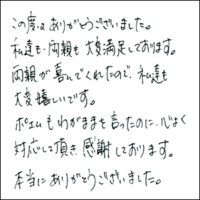 この度は ありがとうございました。
私達も、両親も 大変満足しております。
両親が喜んでくれたので、私達も
大変嬉しいです。
ポエムもわがままを言ったのに、心よく
対応して頂き、感謝しております。
本当にありがとうございました。